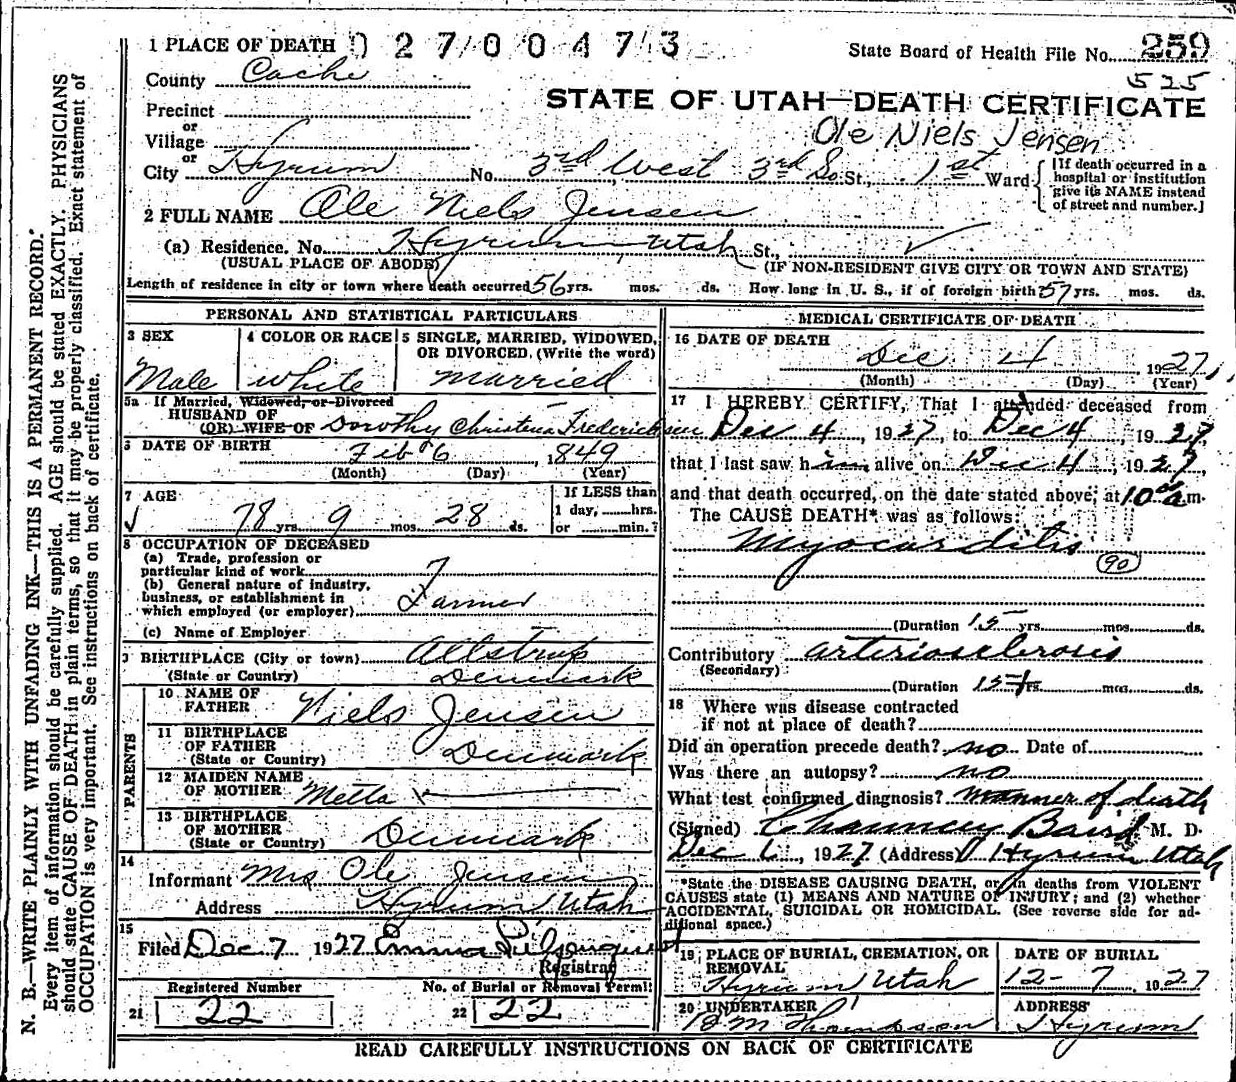 1 PLACE OF DEATH 0 2 7 0 0 4 7 3
State Board of Health File No. 259
County Cache
525
STATE OF UTAH—DEATH CERTIFICATE
Precinct
or
Village
Ole Niels Jensen
or
City Hyrum No. 3rd West 3rd So St., 1st Ward
[If death occurred in a
hospital or institution
give its NAME instead
of street and number.]
2 FULL NAME Ole Niels Jensen
(a) Residence. No. Hyrum, Utah St.,
(USUAL PLACE OF ABODE) (IF NON-RESIDENT GIVE CITY OR TOWN AND STATE)
Length of residence in city or town where death occurred 56 yrs. mos. ds. How long in U. S., if of foreign birth 57 yrs. mos. ds.
PERSONAL AND STATISTICAL PARTICULARS
3 SEX
Male
4 COLOR OR RACE
white
5 SINGLE, MARRIED, WIDOWED,
OR DIVORCED, (Write the word)
married
5a If Married, Widowed, or Divorced
HUSBAND OF
(OR) WIFE OF Dorothy Christina Fredericksen
6 DATE OF BIRTH
Feb 6, 1849
(Month) (Day) (Year)
7 AGE
78 yrs 9 mos. 28 ds.
If LESS than
1 day, hrs.
or min.?
8 OCCUPATION OF DECEASED
(a) Trade, profession or
particular kind of work
(b) General nature of industry,
business, or establishment in
which employed (or employer) Farmer
(c) Name of Employer
9 BIRTHPLACE (City or town) Allstrup
(State or Country) Denmark
PARENTS
10 NAME OF
FATHER Niels Jensen
11 BIRTHPLACE
OF FATHER
(State or Country) Denmark
12 MAIDEN NAME
OF MOTHER Metta
13 BIRTHPLACE
OF MOTHER
(State or Country) Denmark
14
Informant Mrs Ole Jensen
Address Hyrum Utah
15
Filed Dec 7 1927 Emma Liljenquist
Registrar
Registered Number
21 22
No. of Burial or Removal Permit
22 22
MEDICAL CERTIFICATE OF DEATH
16 DATE OF DEATH
Dec 4 1927
(Month) (Day) (Year)
17 I HEREBY CERTIFY, That I attended deceased from
Dec 4, 1927, to Dec 4, 1927
that I last saw him alive on Dec 4, 1927,
and that death occurred, on the date stated above, at 10 a m.
The CAUSE DEATH* was as follows:
Myocarditis
90
(Duration 15 yrs. mos. ds.
Contributory arteriosclerosis
(Secondary)
(Duration 15+ yrs. mos. ds.
18 Where was disease contracted
if not at place of death?
Did an operation precede death? no Date of
Was there an autopsy? no
What test confirmed diagnosis? manner of death
(Signed) Chauncey Baird M. D.
Dec 6, 1927 (Address) Hyrum Utah
*State the DISEASE CAUSING DEATH, or in deaths from VIOLENT
CAUSES state (1) MEANS AND NATURE OF INJURY; and (2) whether
ACCIDENTAL, SUICIDAL OR HOMICIDAL. (See reverse side for ad-
ditional space.)
19 PLACE OF BURIAL, CREMATION, OR
REMOVAL
Hyrum Utah
DATE OF BURIAL
12-7, 1927
20 UNDERTAKER
ADDRESS
Hyrum
READ CAREFULLY INSTRUCTIONS ON BACK OF CERTIFICATE
N. B.—WRITE PLAINLY WITH UNFADING INK—THIS IS A PERMANENT RECORD.
Every item of information should be carefully supplied. AGE should be stated EXACTLY. PHYSICIANS
should state CAUSE OF DEATH in plain terms, so that it may be properly classified. Exact statement of
OCCUPATION is very important. See instructions on back of certificate.